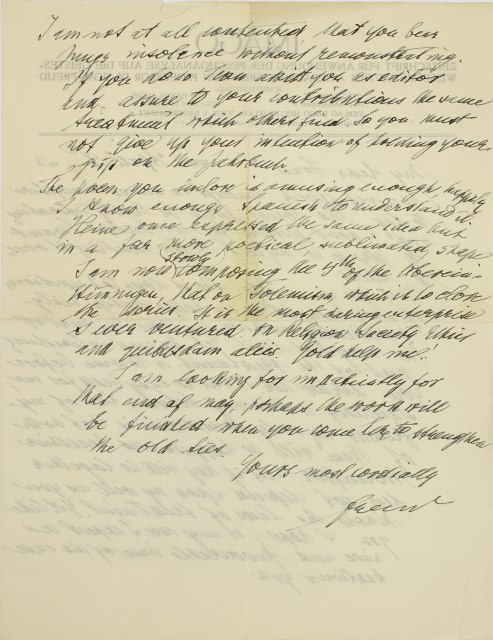 I am not at all contented that you bear
Jungs insolence without remonstrating.
If you do so I can assist you as editor
and assure to your contributions the same
treatment which others find. So you must
not give up your intention of holding your
grip on the Jahrbuch.
The poem you inclose is amusing enough, happily
I know enough Spanish to understand it.
Heine once expressed the same idea but
in a far more poetical sublimated shape.
I am now slowly composing the 4th of the Überein-
stimmungen, that on Totemism, which is to close
the series. It is the most daring enterprise
I ever ventured. On Religion, Society, Ethics
and quibusdam aliis. God help me!
I am looking for impatiently for
that end of May perhaps the work will
be finished when you come to strengthen
the old ties.
Yours most cordially
Freud